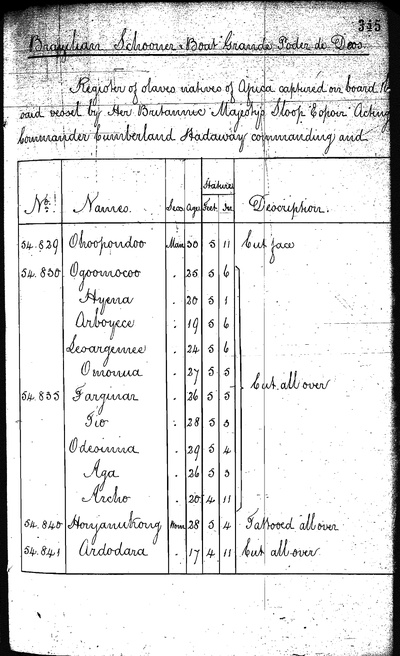 345
Brazilian Schooner Boat Grande Poder de Deos.
Register of slaves natives of Africa captured on board the
said vessel by Her Britannic Majesty's Sloop Espoir Acting
Commander Cumberland Hadaway commanding and
Stature
No. Names. Sex Age Feet In. Description.
54.829 Ohoopondoo Man 30 5 11 Cut face
54.830 Ogoomocoo . 25 5 6
Hyena . 20 5 1
Arboyece : 19 5 6
Seoargemee . 24 5 6
Omonua . 27 5 5
Cut all over
54.835 Farginar . 26 5 5
Tio : 28 5 3
Odesinna . 29 5 4
Aga . 26 5 3
Archo . 20 4 11
54.840 Honyamukong Wom 28 5 4 Tattooed all over
54.841 Ardodara . 17 4 11 Cut all over